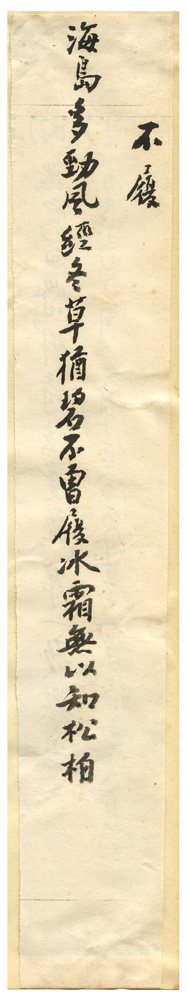 不履
海島多勁風經冬草猶碧不曾履冰霜無以知松柏